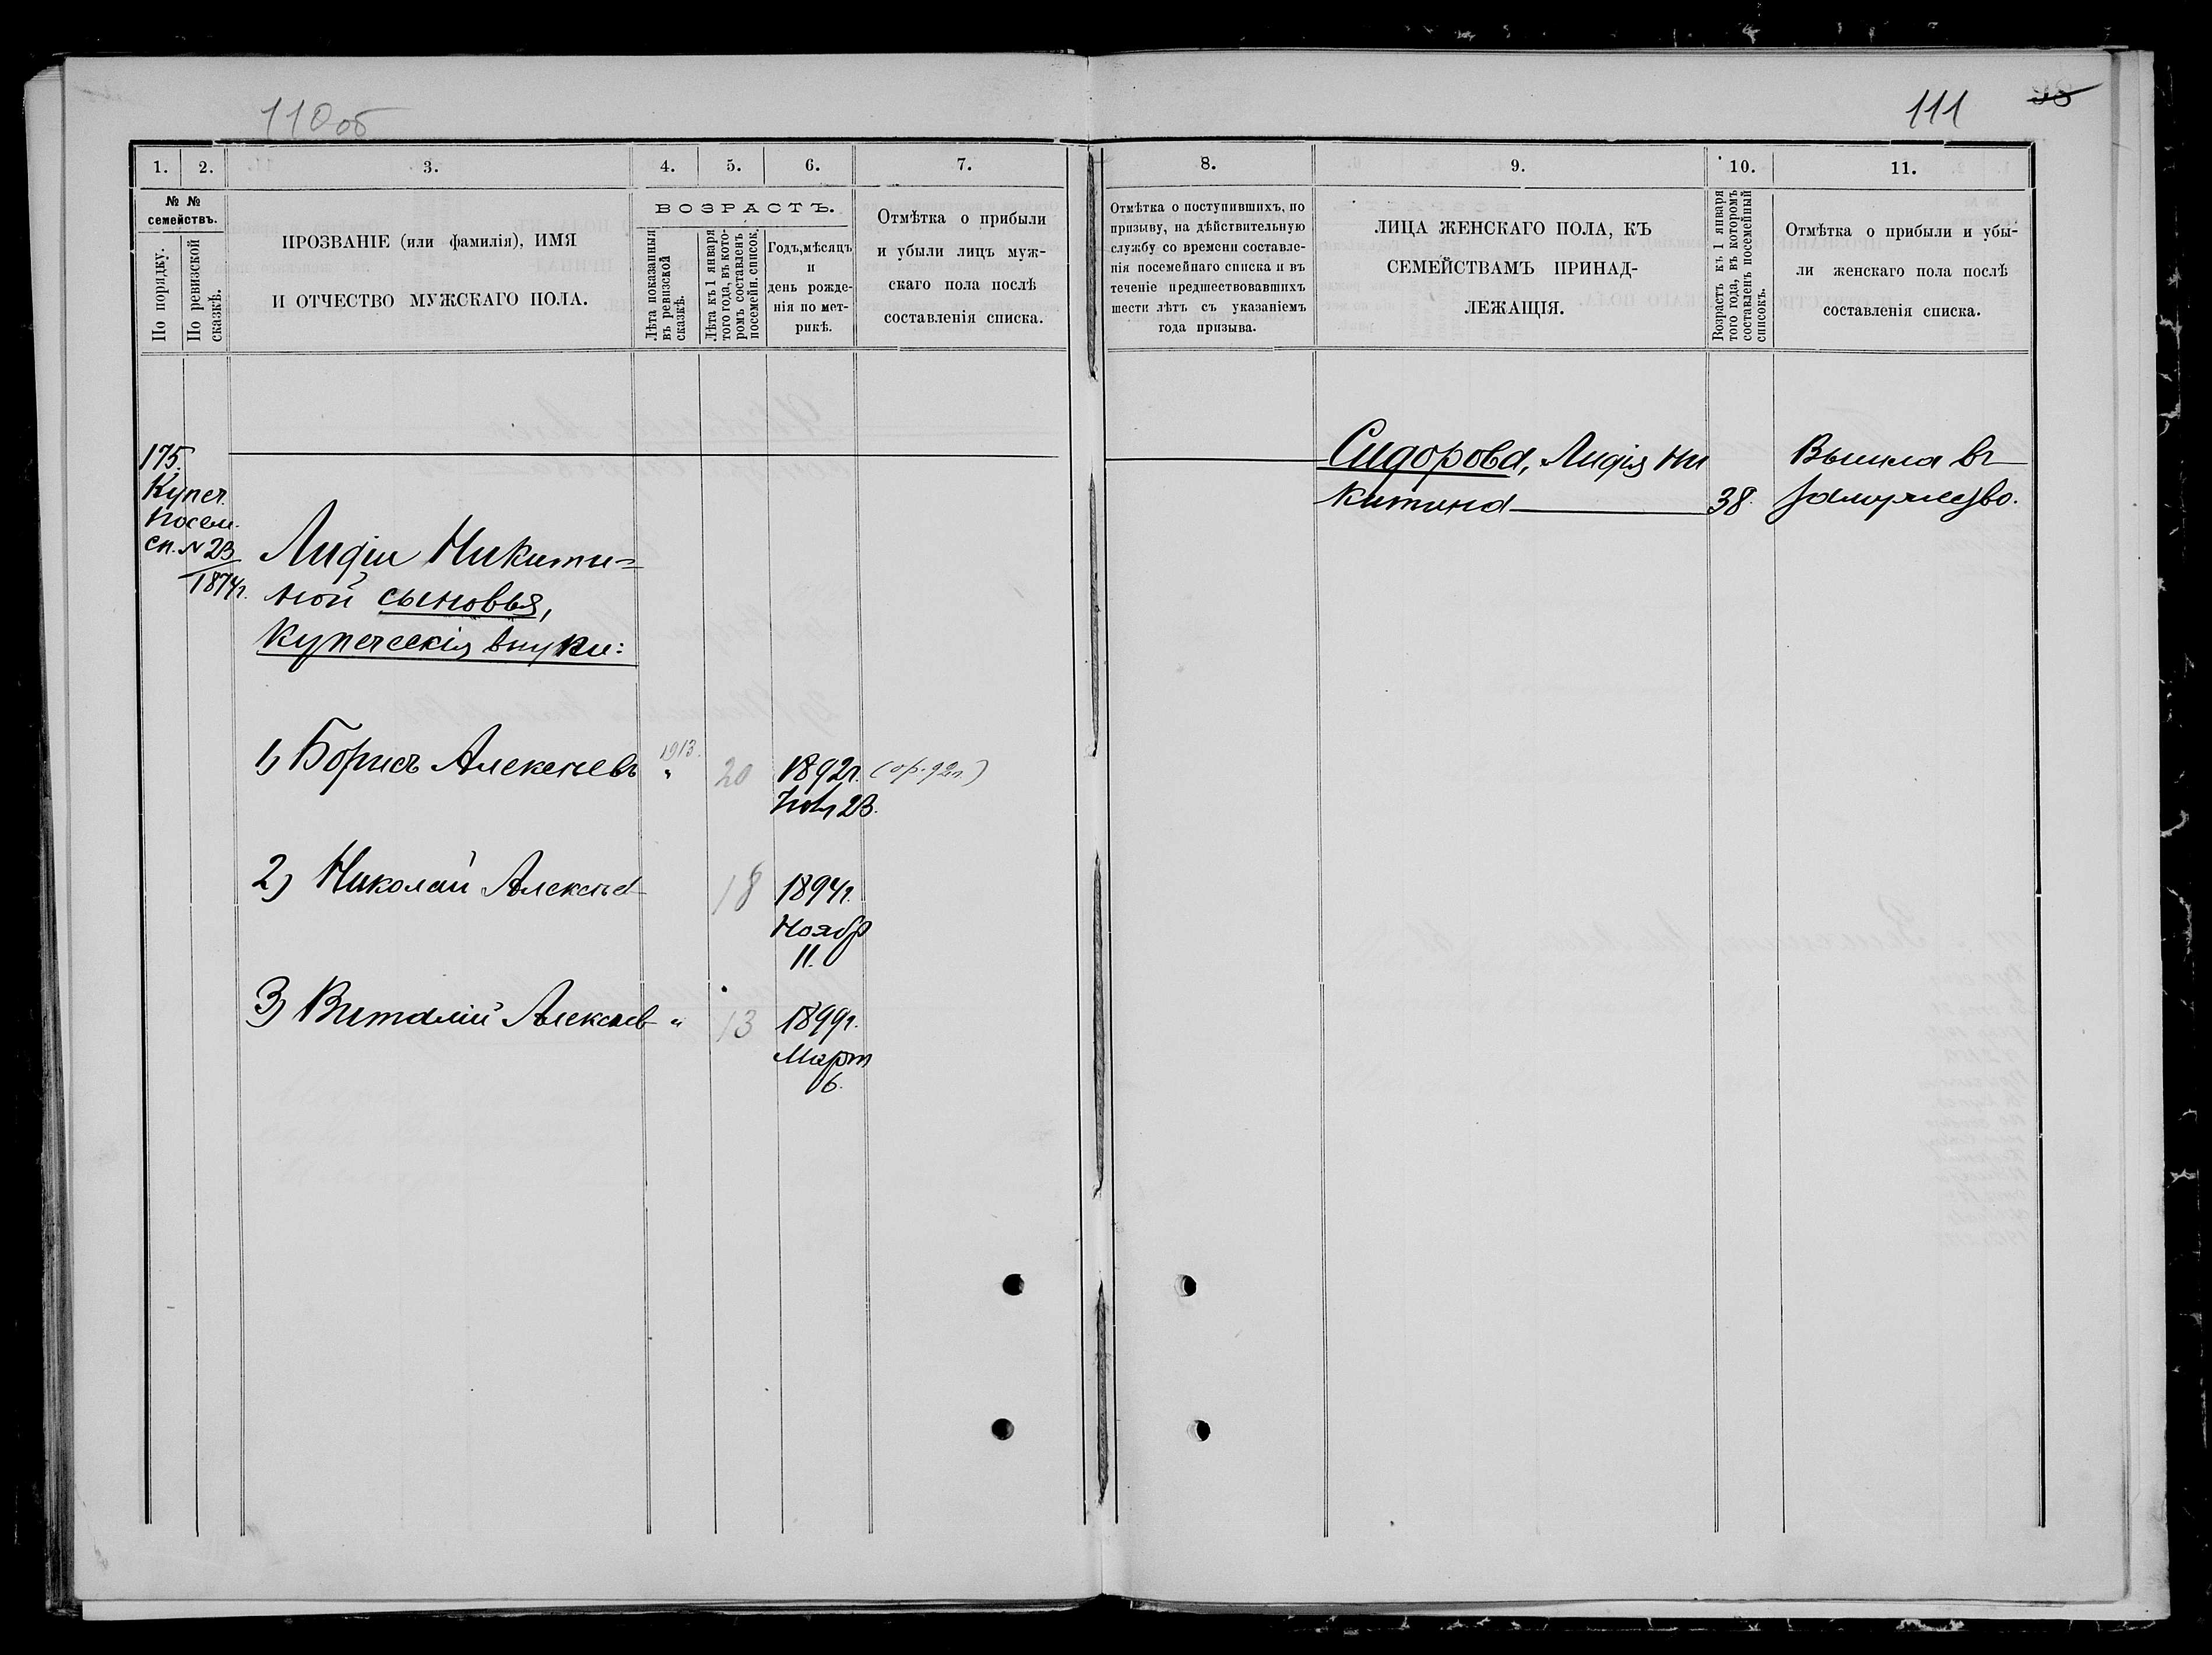 110об
1. 2. 3. 4. 5. 6. 7.
№ №
семействъ.
По порядку.
По ревизской
сказкѣ.
ПРОЗВАНІЕ (или фамилія), ИМЯ
И ОТЧЕСТВО МУЖСКАГО ПОЛА.
ВОЗРАСТЪ.
Лѣта показанныя
въ ревизской
сказкѣ.
Лѣта къ 1 января
того года, въ кото-
ромъ составленъ
посемейн. список.
Годъ, мѣсяцъ
и
день рожде-
нія по мет-
рикѣ.
Отмѣтка о прибыли
и убыли лицъ муж-
скаго пола послѣ
составленія списка.
175.
Купеч.
Посем.
сп. N 23
1874г.
Лидіи Никити-
ной сыновья,
Купеческія внуки:
1) Борисъ Алексѣевъ 1913. " 20 1892г. (ор. 92г.)
23.
2) Николай Алексѣев 18 1894г.
Ноябр
11.
3) Виталій Алексѣев " 13 1899г.
Март
6.
111 98
8. 9. 10. 11.
Отмѣтка о поступившихъ, по
призыву, на дѣйствительную
службу со времени составле-
нія посемейнаго списка и въ
теченіе предшествовавшихъ
шести лѣтъ съ указаніемъ
года призыва.
ЛИЦА ЖЕНСКАГО ПОЛА, КЪ
СЕМЕЙСТВАМЪ ПРИНАД-
ЛЕЖАЩІЯ.
Возрастъ къ 1 января
того года, въ которомъ
составленъ посемейный
списокъ.
Отмѣтка о прибыли и убы-
ли женскаго пола послѣ
составленія списка.
Сидорова, Лидія Ни
китина 38.
Вышла въ
замужество.